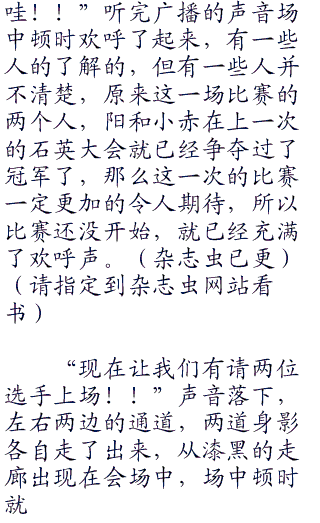 哇！！”听完广播的声音场
中顿时欢呼了起来，有一些
人的了解的，但有一些人并
不清楚，原来这一场比赛的
两个人，阳和小赤在上一次
的石英大会就已经争夺过了
冠军了，那么这一次的比赛
一定更加的令人期待，所以
比赛还没开始，就已经充满
了欢呼声。（杂志虫已更）
（请指定到杂志虫网站看
书）
“现在让我们有请两位
选手上场！！”声音落下，
左右两边的通道，两道身影
各自走了出来，从漆黑的走
廊出现在会场中，场中顿时
就